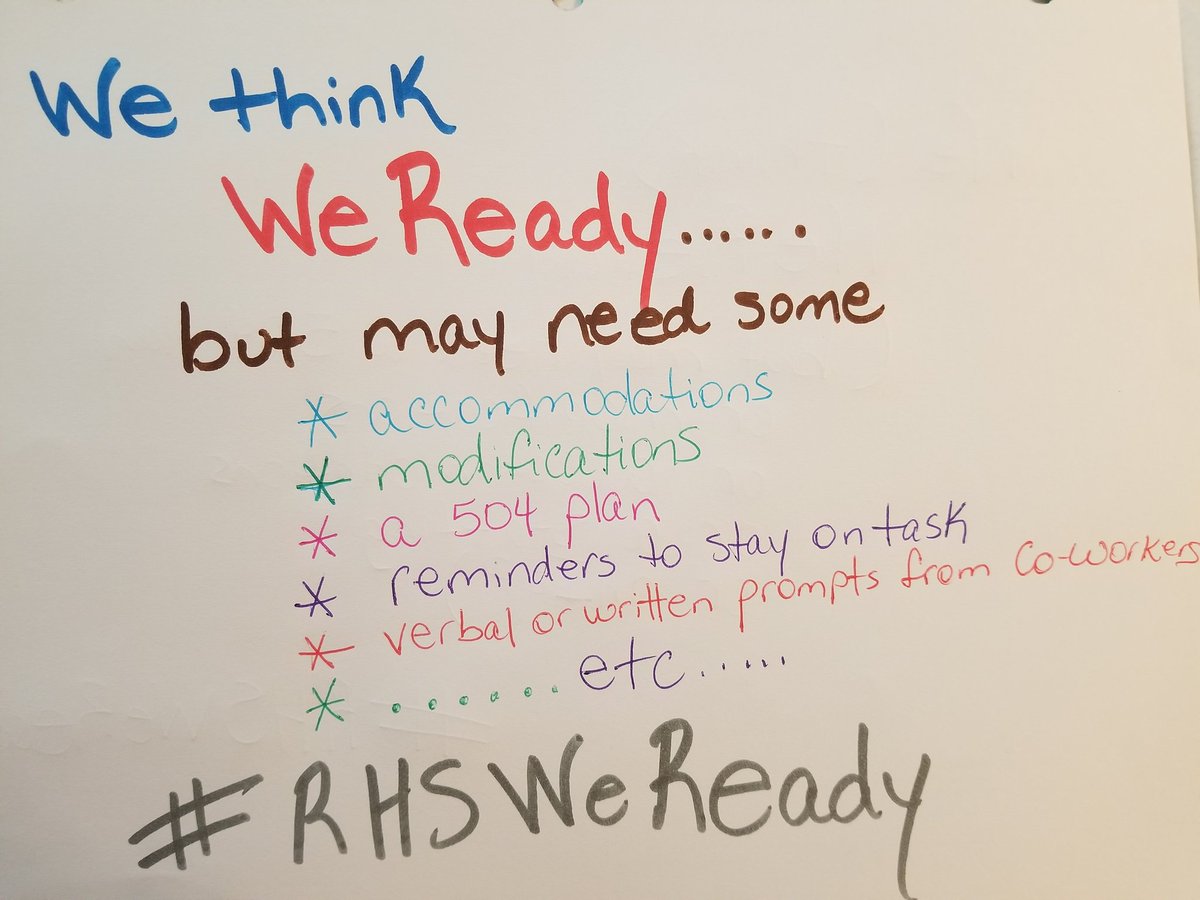 We think
We Ready......
but may need some
* accommodations
* modifications
* a 504 plan
* reminders to stay on task
* verbal or written prompts from Co-workers
* ....... etc......
#RHSWeReady